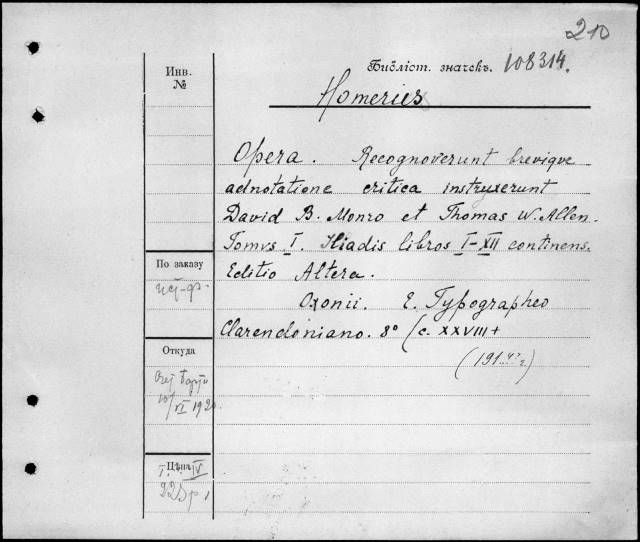 210
Библіот. значекъ. 108314.
Инв.
№
Homerius
Opera. Recognoverunt brevique
adnotatione critica instruxerunt
David B. Monro et Thomas W. Allen.
Tomus I. Iliadis libros I-XII continens.
Editio Altera.
Oxonii. E. Typographeo
Clarendoniano. 8° (c. XXVIII +
По заказу
Откуда
10/VI 1920
Цѣна IV